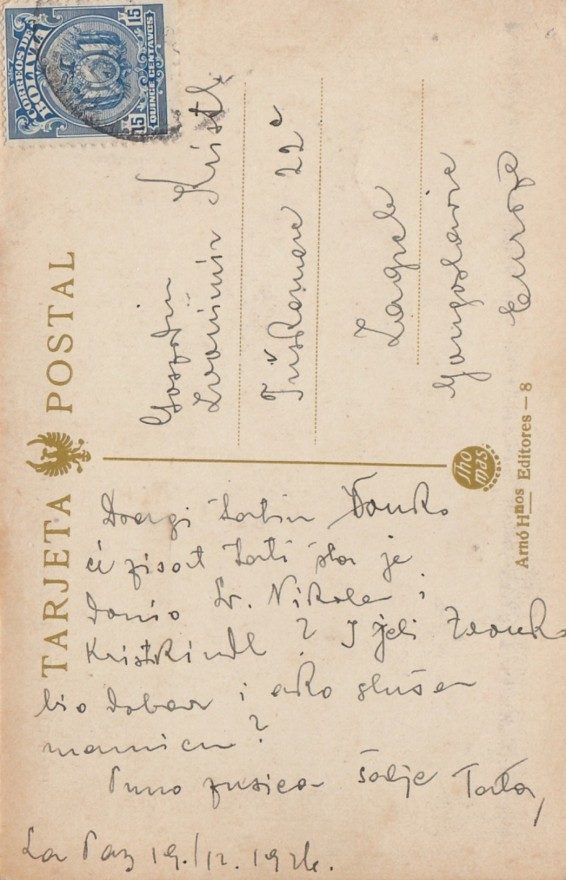 CORREOS DE
BOLIVIA
15 15
QUINCE CENTAVOS
TARJETA POSTAL
Gospodin
Zvonimir Kristl
Tuškanac 22a
Zagreb
Yougoslavia
Europa
Thomas
Arnó Hnos Editores – 8
Dragi Zatin Vonko
će pisat tati šta je
donio Sv. Nikola i
Kristkindl? I jeli Zvonko
bio dobar i ako slušao
mamicu?
Puno pusica šalje Tata,
La Paz 19./12. 1926.